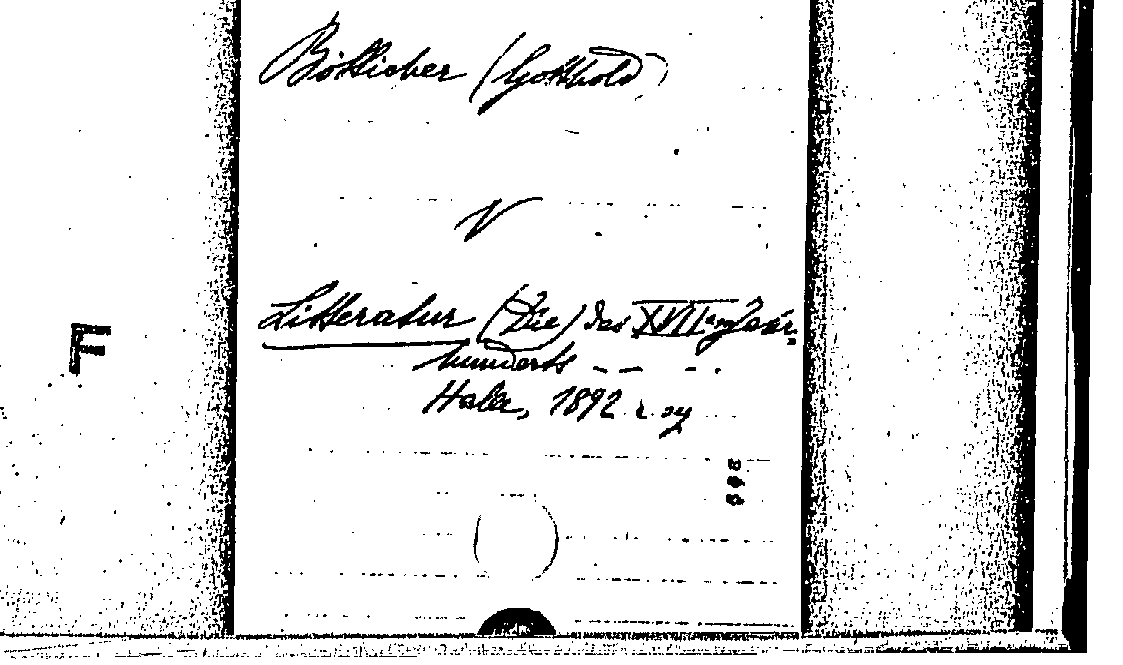 Bötticher (Gotthold)
V
Litteratur (Die) des XVIIten Jahr-
hunderts - - - - .
Halle, 1892
F